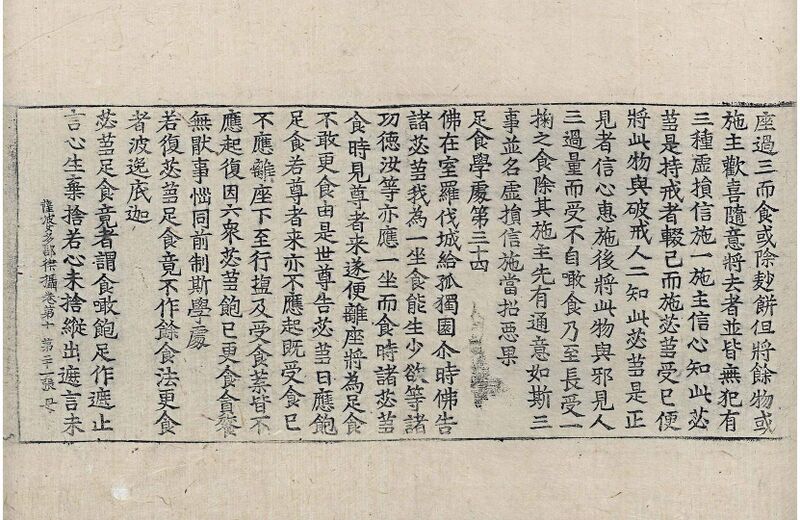 座過三而食或除麨餅但將餘物或
施主歡喜隨意將去者並皆無犯有
三種虛損信施一施主信心知此苾
蒭是持戒者輟己而施苾蒭受已便
將此物與破戒人二知此苾蒭是正
見者信心惠施後將此物與邪見人
三過量而受不自噉食乃至長受一
掬之食除其施主先有通意如斯三
事並名虛損信施當招惡果
足食學處第三十四
佛在室羅伐城給孤獨園尒時佛告
諸苾蒭我為一坐食能生少欲等諸
功德汝等亦應一坐而食時諸苾蒭
食時見尊者來遂便離座將為足食
不敢更食由是世尊告苾蒭曰應飽
足食若尊者来亦不應起既受食已
不應離座下至行塩及受食菜皆不
應起復因六衆苾蒭飽已更食貪饕
無猒事惱同前制斯學處
若復苾蒭足食竟不作餘食法更食
者波逸底迦
苾蒭足食竟者謂食噉飽足作遮止
言心生棄捨若心未捨縱出遮言未
薩婆多部律攝卷第十 第三張 母